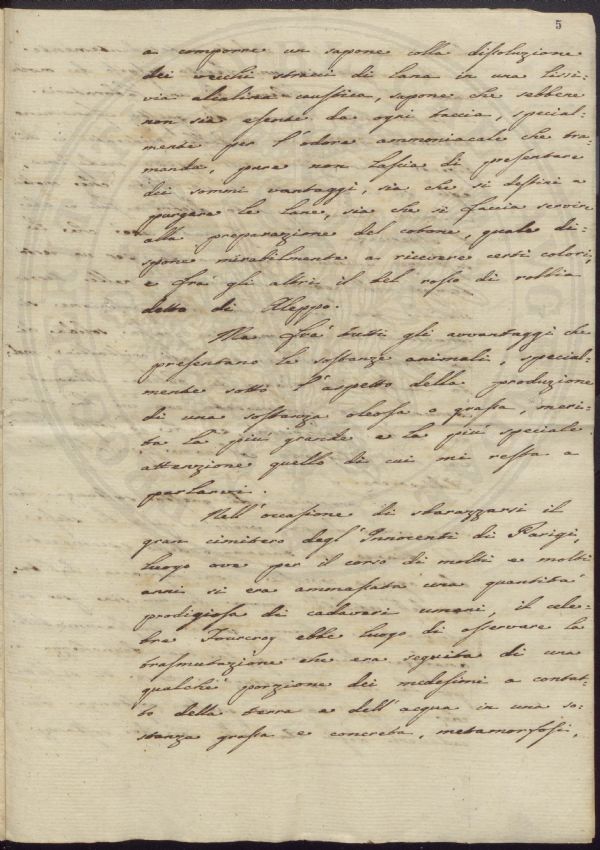 5
a comporne un sapone colla dissoluzione
dei vecchi stracci di lana in una lissi-
via alcalina caustica, sapone che sebbene
non sia esente da ogni taccia, special-
mente per l'odore ammoniacale che tra-
manda, pure non lascia di presentare
dei sommi vantaggi, sia che si destini a
purgare le lane, sia che si faccia servire
alla preparazione del cotone, quale di-
spone mirabilmente a ricevere certi colori,
e frà gli altri il bel rosso di robbia
detto di Aleppo.
Ma frà tutti gli avvantaggi che
presentano le sostanze animali, special-
mente sotto l'aspetto della produzione
di una sostanza oleosa o grassa, meri-
ta la più grande e la più speciale
attenzione quello di cui mi resta a
parlarvi.
Nell'occasione di sbarazzarsi il
gran cimitero degl'Innocenti di Parigi,
luogo ove per il corso di molti e molti
anni si era ammassata una quantità
prodigiosa di cadaveri umani, il cele-
bre Fourcroy ebbe luogo di osservare la
trasmutazione che era seguita di una
qualche porzione dei medesimi a contat-
to della terra e dell'acqua in una so-
stanza grassa e concreta, metamorfosi,